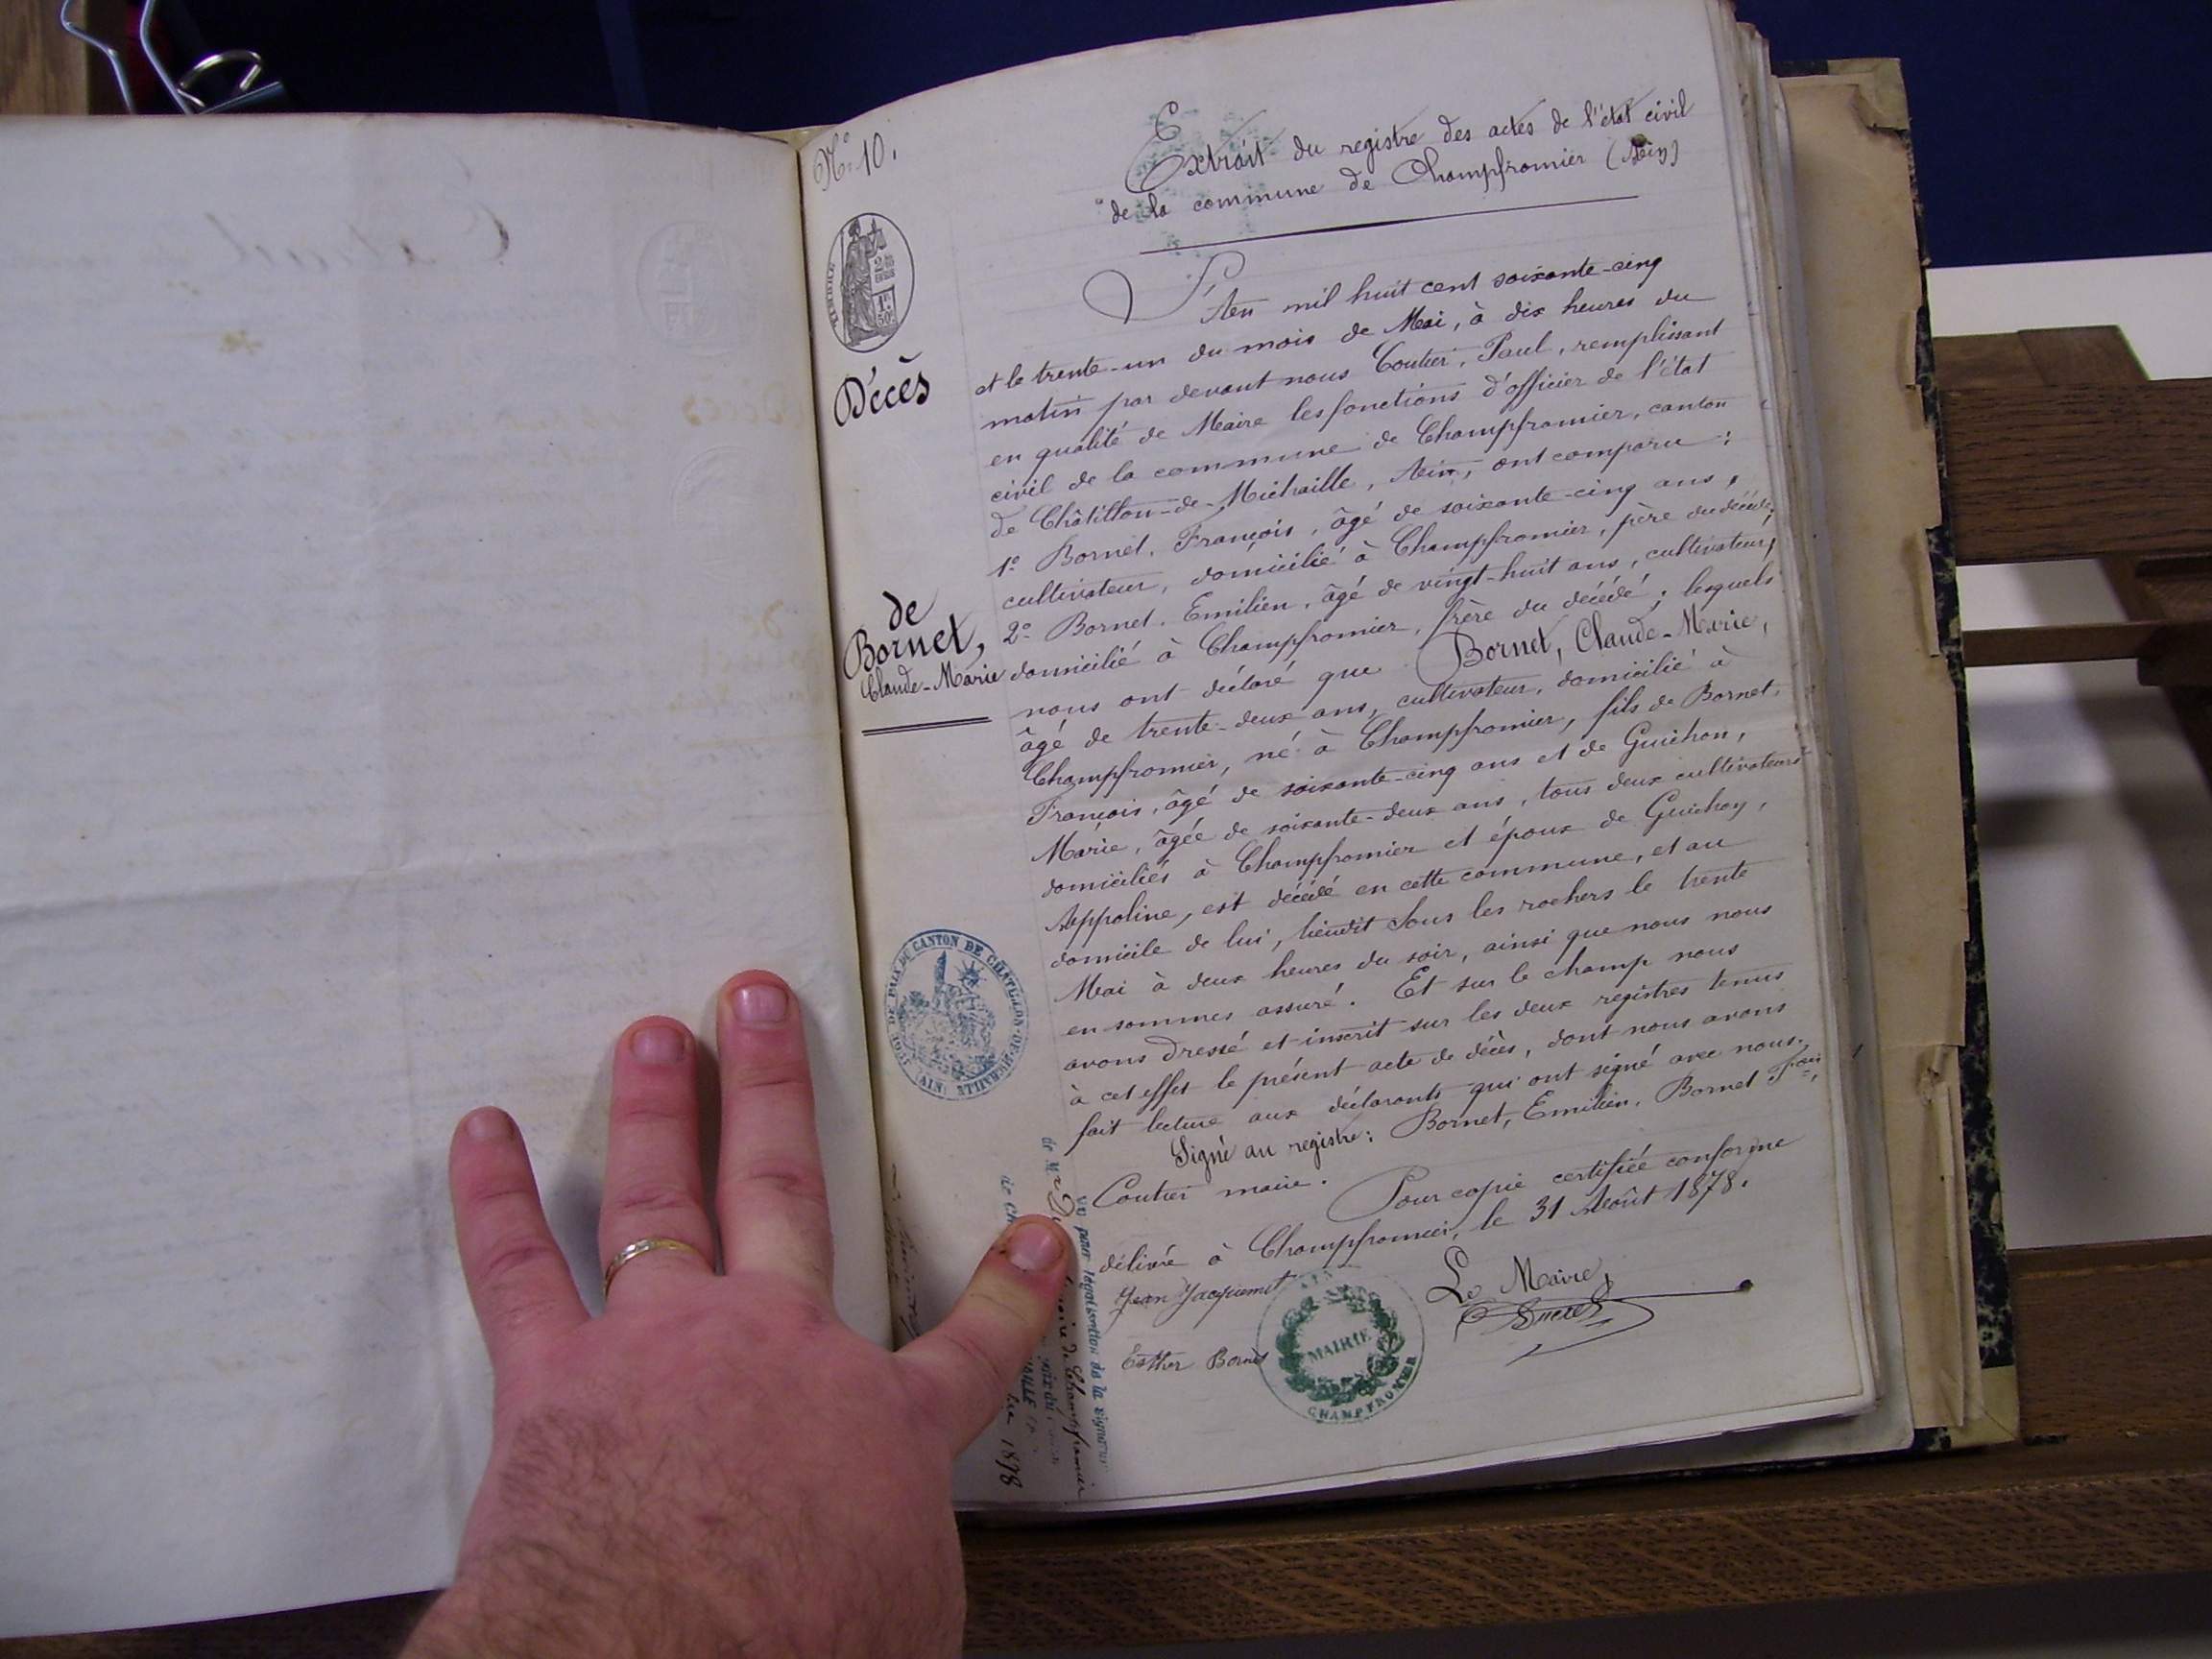 N° 10.
Extrait du registre des actes de l'état civil
de la commune de Champfromier (Ain)
TIMBRE
L'An mil huit cent soixante-cinq
et le trente-un du mois de Mai, à dix heures du
matin par devant nous Coutier, Paul, remplissant
en qualité de Maire les fonctions d'officier de l'état
civil de la commune de Champfromier, canton
de Châtillon-de-Michaille, Ain, ont comparu :
1° Bornet, François, âgé de soixante-cinq ans,
cultivateur, domicilié à Champfromier, père du décédé,
2° Bornet, Emilien, âgé de vingt-huit ans, cultivateur,
domicilié à Champfromier, frère du décédé ; lesquels
nous ont déclaré que Bornet, Claude-Marie,
âgé de trente-deux ans, cultivateur, domicilié à
Champfromier, né à Champfromier, fils de Bornet,
François, âgé de soixante-cinq ans et de Guichon,
Marie, âgée de soixante-deux ans, tous deux cultivateurs
domiciliés à Champfromier et époux de Guichon,
Appoline, est décédé en cette commune, et au
domicile de lui, lieudit Sous les rochers le trente
Mai à deux heures du soir, ainsi que nous nous
en sommes assuré. Et sur le champ nous
avons dressé et inscrit sur les deux registres tenus
à cet effet le présent acte de décès, dont nous avons
fait lecture aux déclarants qui ont signé avec nous.
Signé au registre : Bornet, Emilien, Bornet Fçois,
Coutier maire.
Pour copie certifiée conforme
délivré à Champfromier, le 31 Août 1878.
Le Maire,
Jean Jacquemet
Esther Bornet
MAIRIE
CHAMPFROMIER
Décès
de
Bornet,
Claude-Marie
DE PAIX DU CANTON DE CHATILLON-DE-MICHAILLE (AIN)
Vu pour légalisation de la signature
de Mr
maire de Champfromier
1878